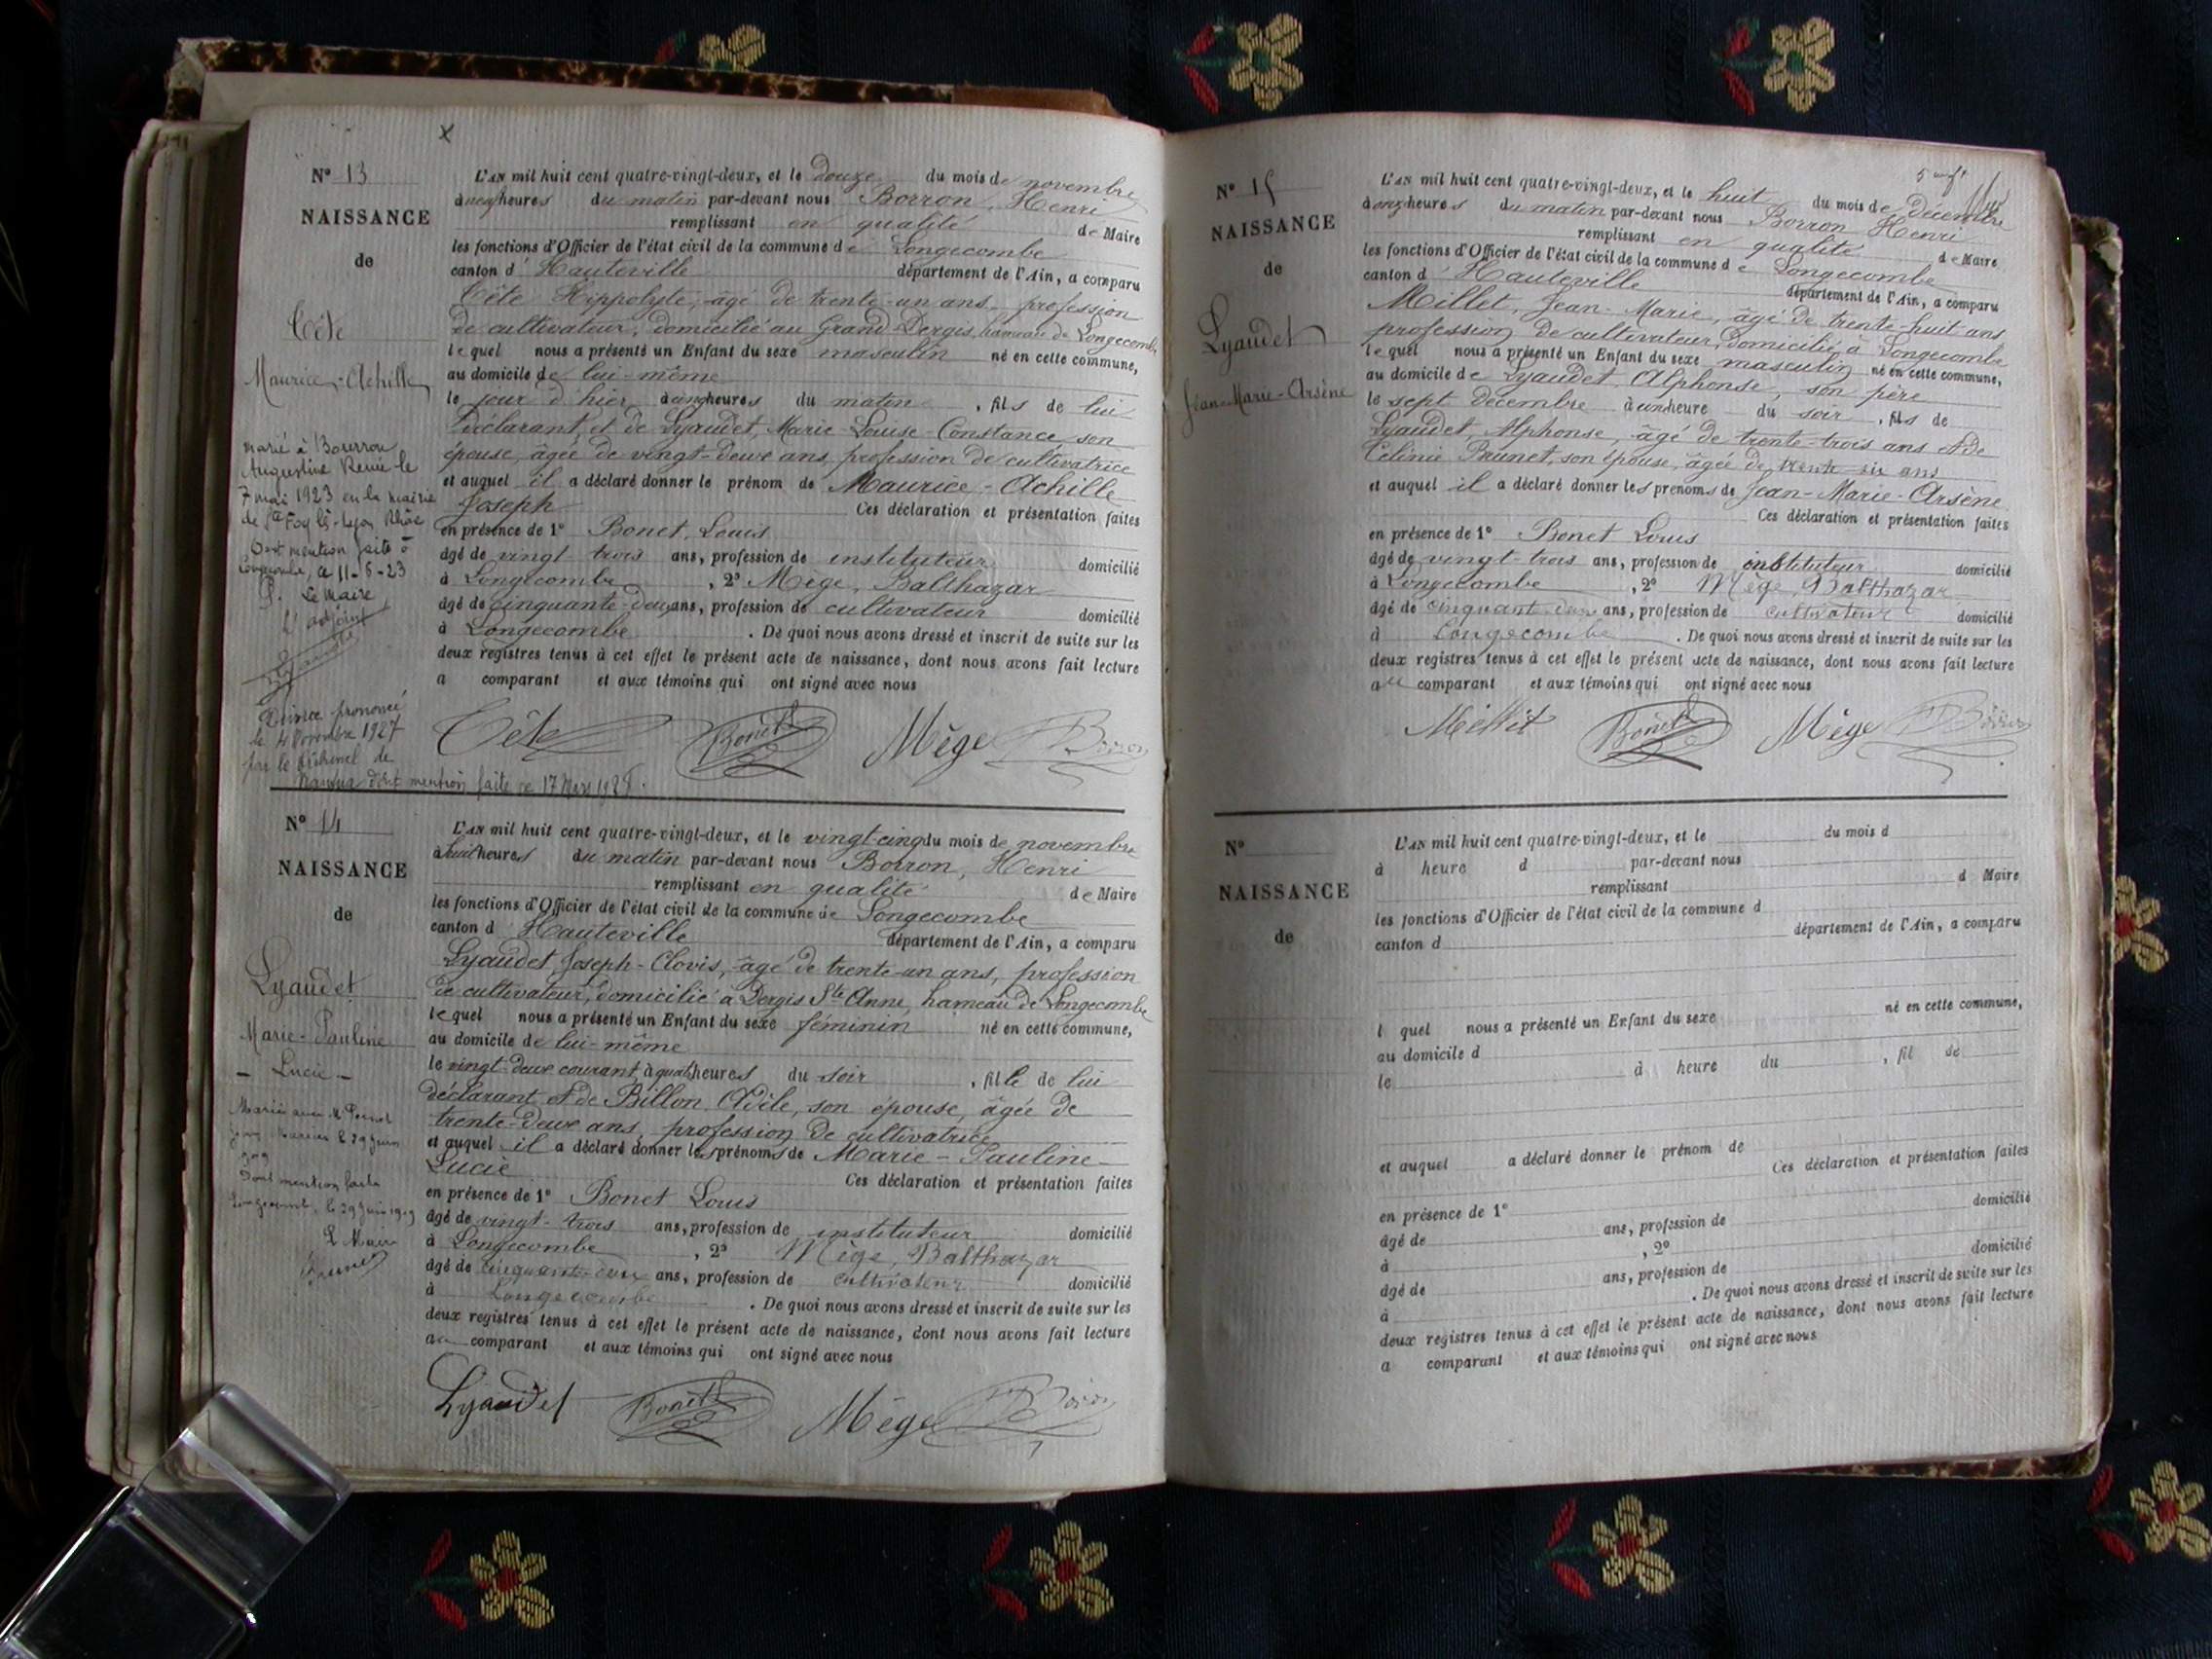 N° 13
NAISSANCE
de
Tête
Maurice-Achille
marié à Bourron
Augustine Renée le
7 mai 1923 en la mairie
de Ste Foy lès-Lyon Rhône
Dont mention faite à
Longecombe, ce 11-6-23
P. Le Maire
L'adjoint
Lyaudet
Divorce prononcé
le 4 Novembre 1927
par le tribunal de
Nantua dont mention faite ce 17 Mars 1928.
L'AN mil huit cent quatre-vingt-deux, et le douze du mois de novembre
à neuf heures du matin par-devant nous Borron, Henri
remplissant en qualité de Maire
les fonctions d'Officier de l'état civil de la commune de Longecombe
canton d'Hauteville département de l'Ain, a comparu
Tête Hippolyte, âgé de trente-un ans, profession
de cultivateur, domicilié au Grand Dergis, hameau de Longecombe
lequel nous a présenté un Enfant du sexe masculin né en cette commune,
au domicile de lui-même
le jour d'hier à cinq heures du matin, fils de lui
déclarant, et de Lyaudet, Marie-Louise-Constance, son
épouse, âgée de vingt-deux ans, profession de cultivatrice
et auquel il a déclaré donner le prénom de Maurice-Achille
Joseph Ces déclaration et présentation faites
en présence de 1° Bonet, Louis
âgé de vingt-trois ans, profession de instituteur domicilié
à Longecombe, 2° Mège, Balthazar
âgé de cinquante-deux ans, profession de cultivateur domicilié
à Longecombe. De quoi nous avons dressé et inscrit de suite sur les
deux registres tenus à cet effet le présent acte de naissance, dont nous avons fait lecture
a comparant et aux témoins qui ont signé avec nous
Tête Bonet Mège Borron
N° 14
NAISSANCE
de
Lyaudet
Marie-Pauline
- Lucie -
Dont mention faite
Longecombe, le 29 juin 1909
Le Maire
L'AN mil huit cent quatre-vingt-deux, et le vingt-cinq du mois de novembre
à huit heures du matin par-devant nous Borron, Henri
remplissant en qualité de Maire
les fonctions d'Officier de l'état civil de la commune de Longecombe
canton d'Hauteville département de l'Ain, a comparu
Lyaudet Joseph-Clovis, âgé de trente-un ans, profession
de cultivateur, domicilié à Dergis Ste Anne, hameau de Longecombe
lequel nous a présenté un Enfant du sexe féminin né en cette commune,
au domicile de lui-même
le vingt-deux courant à quatre heures du soir, fille de lui
déclarant et de Billon, Adèle, son épouse, âgée de
trente-deux ans, profession de cultivatrice
et auquel il a déclaré donner les prénoms de Marie-Pauline-
Lucie Ces déclaration et présentation faites
en présence de 1° Bonet Louis
âgé de vingt-trois ans, profession de instituteur domicilié
à Longecombe, 2° Mège, Balthazar
âgé de cinquante-deux ans, profession de cultivateur domicilié
à Longecombe. De quoi nous avons dressé et inscrit de suite sur les
deux registres tenus à cet effet le présent acte de naissance, dont nous avons fait lecture
au comparant et aux témoins qui ont signé avec nous
Lyaudet Bonet Mège Borron
N° 15
NAISSANCE
de
Lyaudet
Jean-Marie-Arsène
L'AN mil huit cent quatre-vingt-deux, et le huit du mois de Décembre
à onze heures du matin par-devant nous Borron Henri
remplissant en qualité de Maire
les fonctions d'Officier de l'état civil de la commune de Longecombe
canton d'Hauteville département de l'Ain, a comparu
Millet, Jean-Marie, âgé de trente-huit ans,
profession de cultivateur, domicilié à Longecombe
lequel nous a présenté un Enfant du sexe masculin né en cette commune,
au domicile de Lyaudet, Alphonse, son père
le sept décembre à une heure du soir, fils de
Lyaudet, Alphonse, âgé de trente-trois ans et de
Célinie Prunet, son épouse, âgée de trente-six ans
et auquel il a déclaré donner les prénoms de Jean-Marie-Arsène
Ces déclaration et présentation faites
en présence de 1° Bonet Louis
âgé de vingt-trois ans, profession de instituteur domicilié
à Longecombe, 2° Mège, Balthazar
âgé de cinquante-deux ans, profession de cultivateur domicilié
à Longecombe. De quoi nous avons dressé et inscrit de suite sur les
deux registres tenus à cet effet le présent acte de naissance, dont nous avons fait lecture
au comparant et aux témoins qui ont signé avec nous
Millet Bonet Mège Borron
N°
NAISSANCE
de
L'AN mil huit cent quatre-vingt-deux, et le du mois d
à heure d par-devant nous
remplissant d Maire
les fonctions d'Officier de l'état civil de la commune d
canton d département de l'Ain, a comparu
l quel nous a présenté un Enfant du sexe né en cette commune,
au domicile d
le à heure du , fil de
et auquel a déclaré donner le prénom de
Ces déclaration et présentation faites
en présence de 1°
âgé de ans, profession de domicilié
à , 2°
âgé de ans, profession de domicilié
à . De quoi nous avons dressé et inscrit de suite sur les
deux registres tenus à cet effet le présent acte de naissance, dont nous avons fait lecture
a comparant et aux témoins qui ont signé avec nous